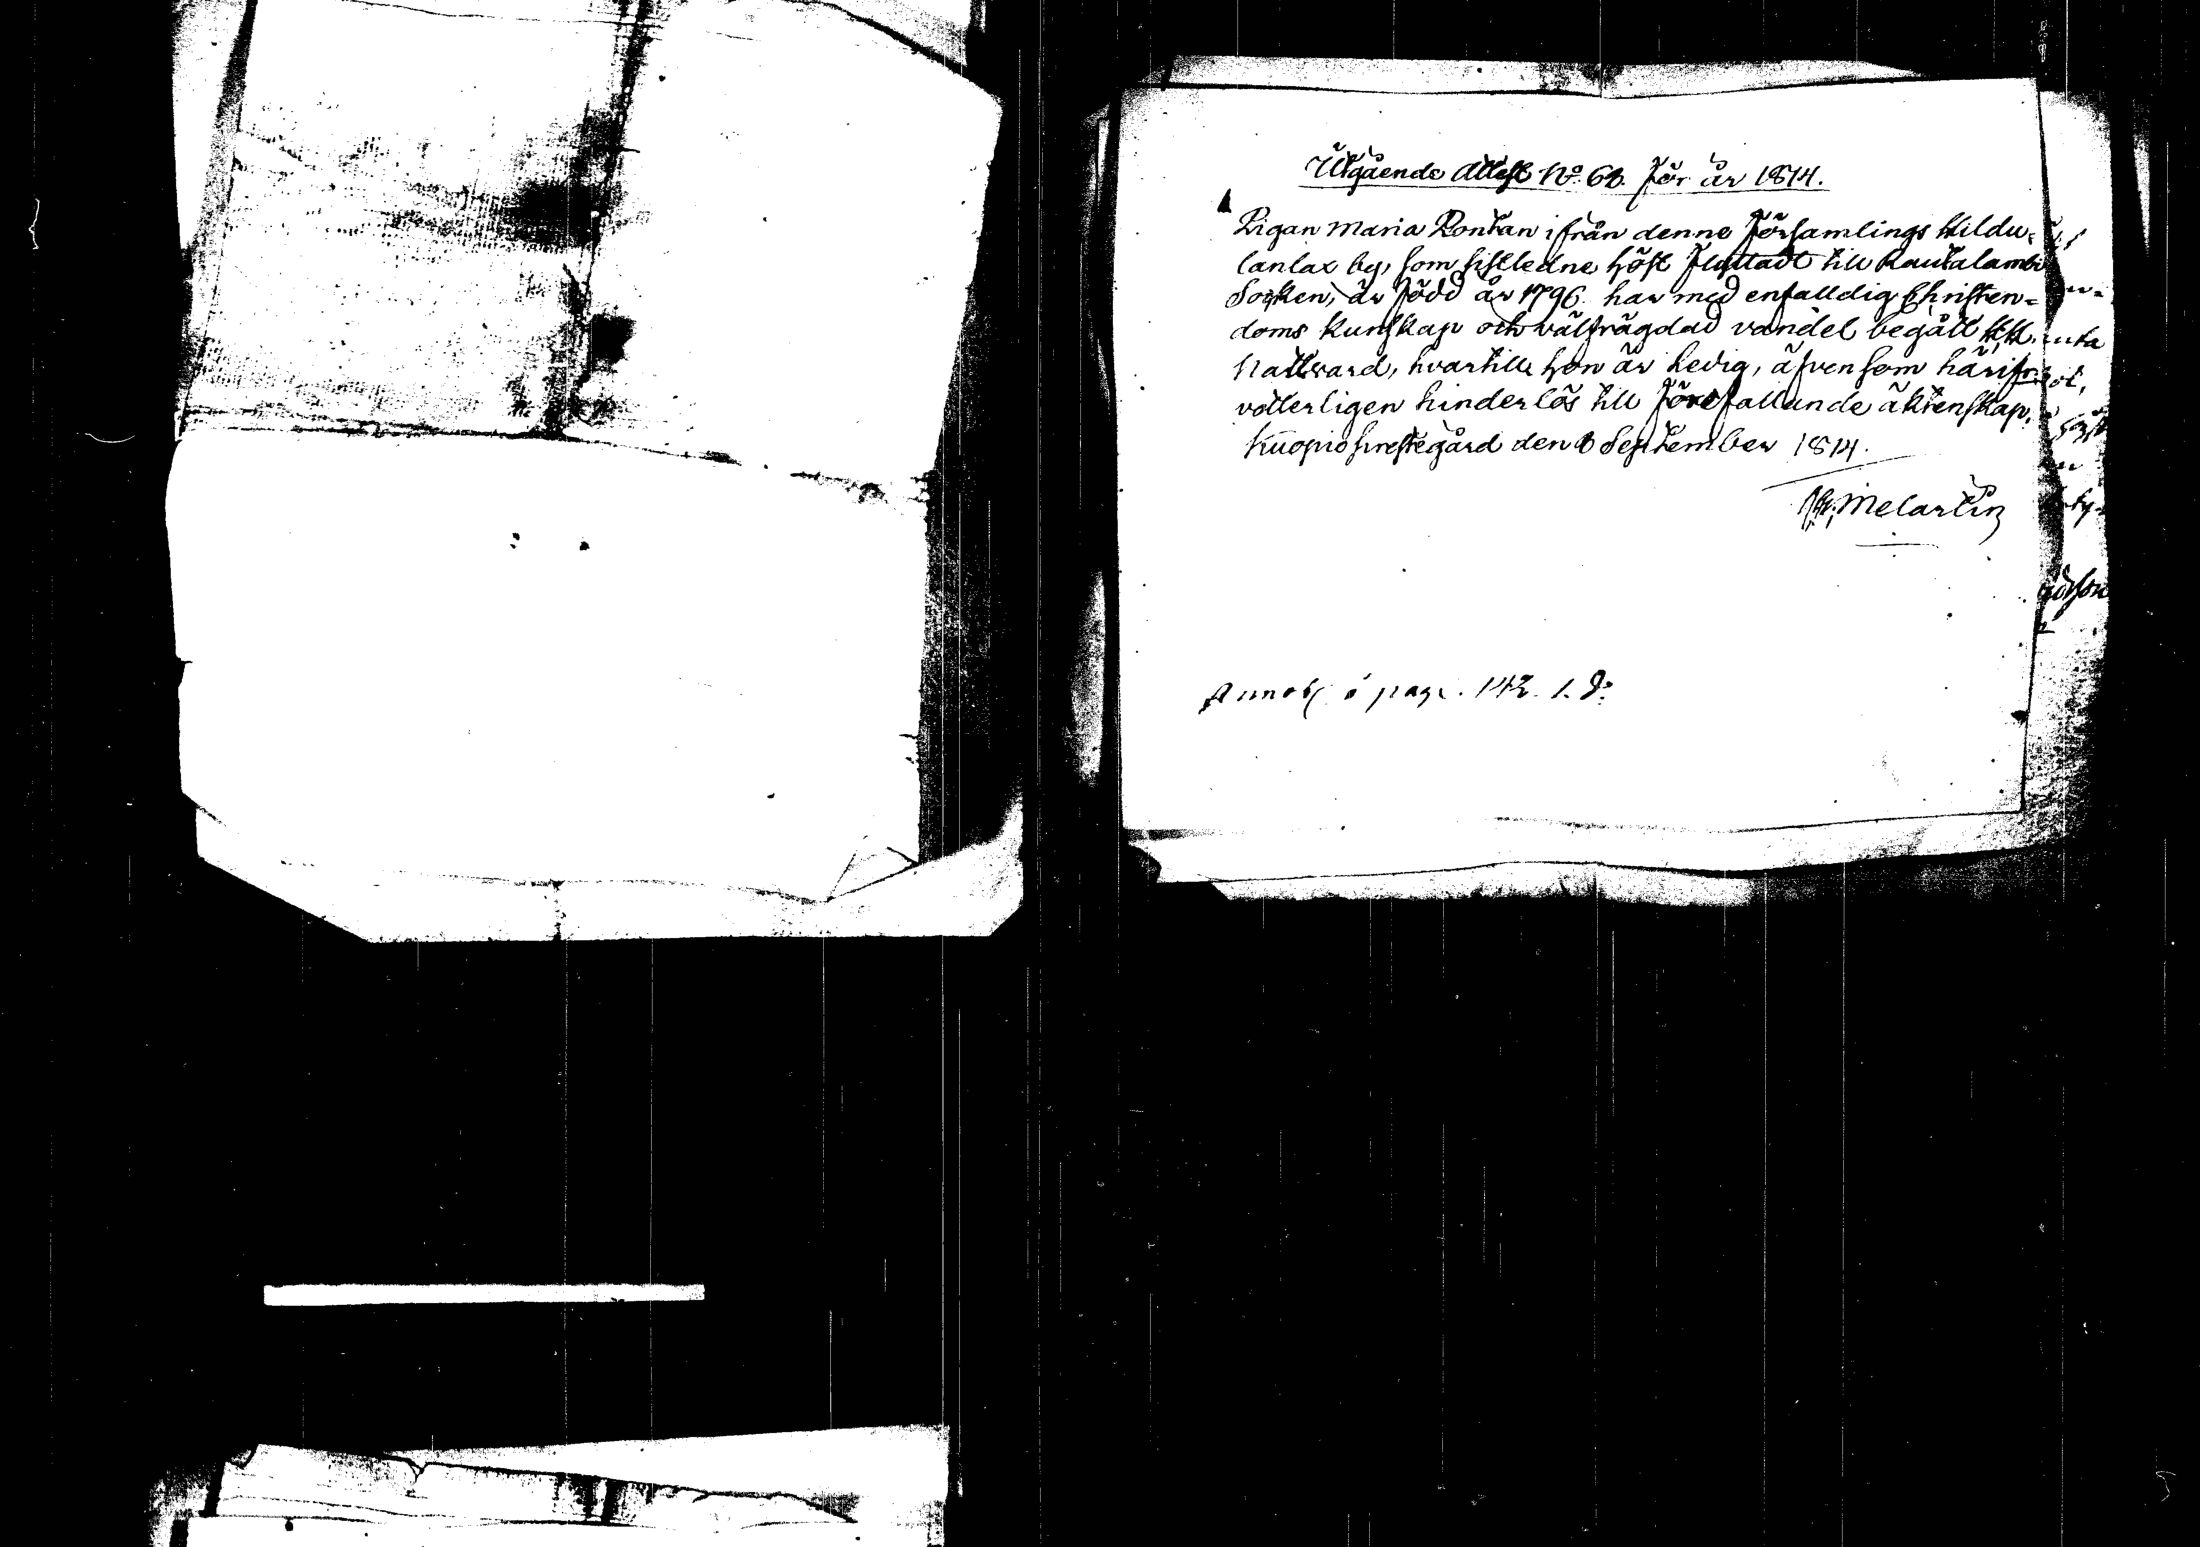 Utgående Attest No. 62. för år 1814.
Pigan Maria Rontan ifrån denne Församlings Hildu-
lanlax by, som sistledne höst flyttadt till Rautalambi
Socken, är född år 1796. har med enfalldig Christen-
doms kunskap och välfrägdad vandel begått HH.
Nattvard, hvartill hon är ledig, äfvensom härifr.
vitterligen hinderlös till förefallande äktenskap.
Kuopio prestegård den 8 September 1814.
Melartin
Annot. å pag. 142. 1. D: